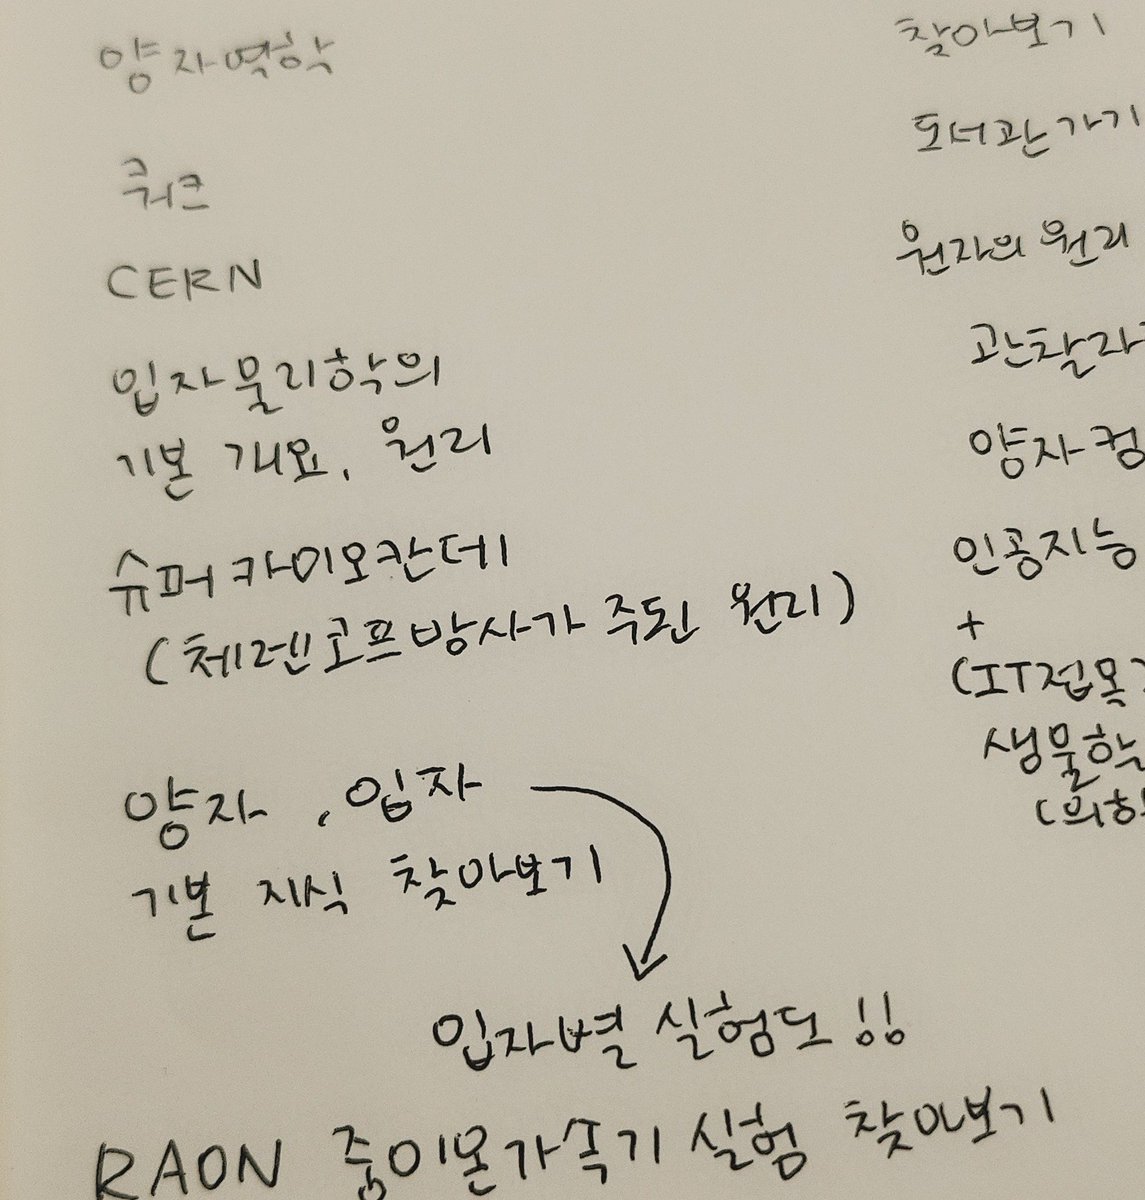 양자역학
쿼크
CERN
입자물리학의
기본 개요, 원리
슈퍼카미오칸데
(체렌코프방사가 주된 원리)
양자, 입자
기본 지식 찾아보기
입자별 실험도!!
RAON 중이온가속기 실험 찾아보기
찾아보기
도서관가기
원자의 원리
관찰
양자컴
인공지능
+
(IT접목
생물학
(의학